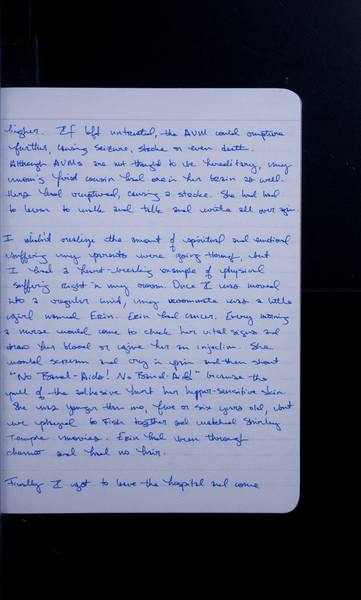 higher. If left untreated, the AVM could rupture
further, causing seizure, stroke or even death.
Although AVMs are not thought to be hereditary, my
mom's first cousin had one in her brain as well.
Hers had ruptured, causing a stroke. She had had
to learn to walk and talk and write all over again.
I didn't realize the amount of spiritual and emotional
suffering my parents were going through, but
I had a heart-breaking example of physical
suffering right in my room. Once I was moved
into a regular unit, my roommate was a little
girl named Erin. Erin had cancer. Every morning
a nurse would come to check her vital signs and
draw her blood or give her an injection. She
would scream and cry in pain and then shout
"No Band-Aids! No Band-Aids!" because the
pull of the adhesive hurt her hyper-sensitive skin.
She was younger than me, five or six years old, but
we played Go Fish together and watched Shirley
Temple movies. Erin had been through
chemo and had no hair.
Finally I got to leave the hospital and come